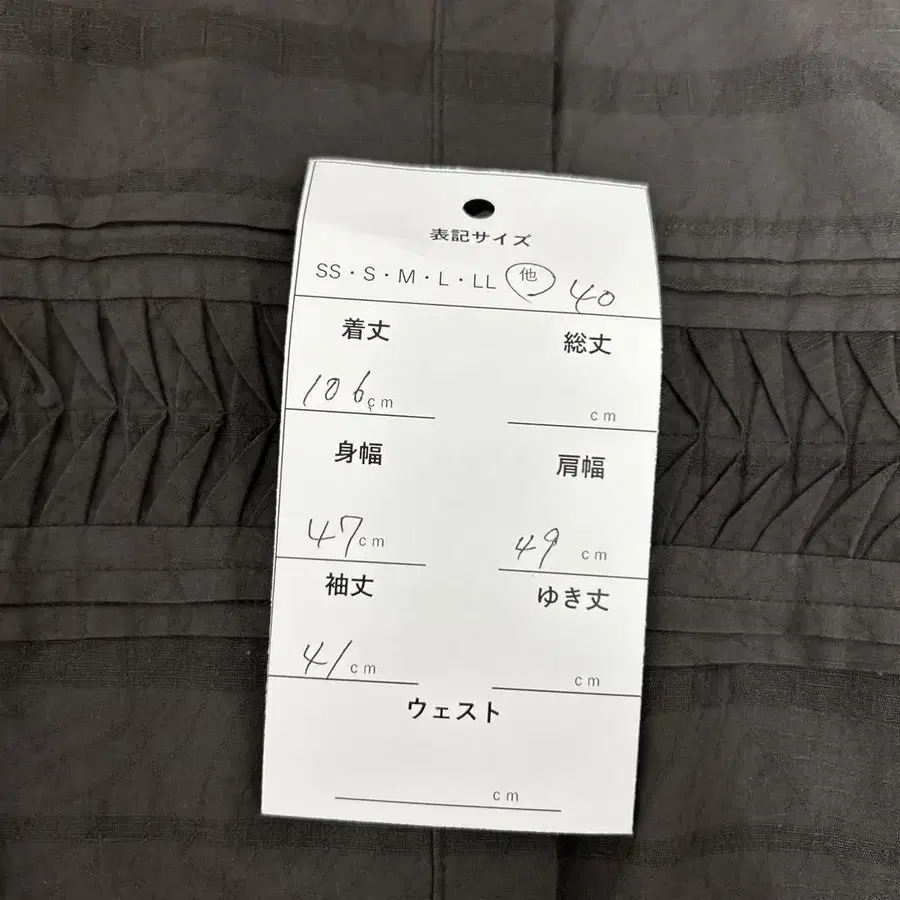 表記サイズ
SS・S・M・L・LL 他 40
着丈 総丈
106cm cm
身幅 肩幅
47cm 49 cm
袖丈 ゆき丈
41cm cm
ウェスト
cm